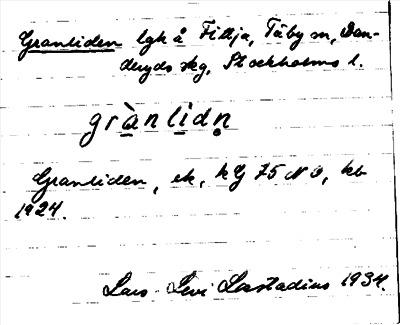 Granliden lgh å Fittja, Täby sn, Dan-
deryds skg, Stockholms l.
grànlidn̥
Granliden, ek, kbl 75 NO, kb
1924.
Lars-Levi Læstadius 1934.